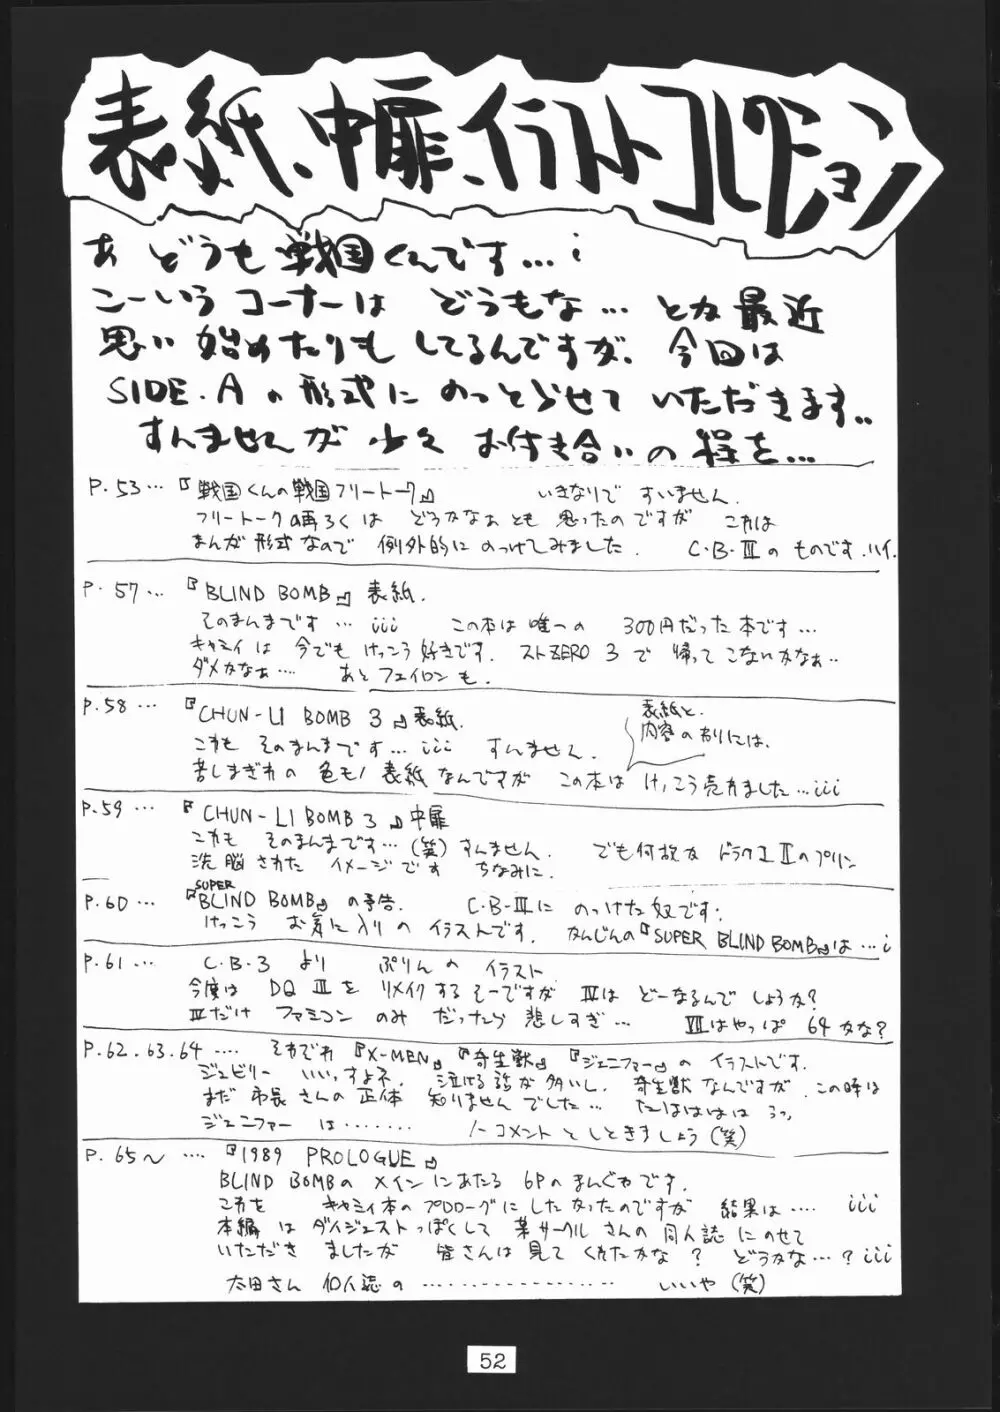 表紙、中扉、イラストコレクション
あ どうも戦国くんです…¡
こーいうコーナーは どうもな… とか最近
思い始めたりもしてるんですが、今回は
SIDE.Aの形式にのっとらせていただきます..
すんませんが少々お付き合いの程を…
P.53…『戦国くんの戦国フリートーク』 いきなりですいません.
フリートークの再ろくは どうかなぁとも思ったのですが これは
まんが形式なので 例外的にのっけてみました. C・B・Ⅲのものです.ハイ.
P.57…『BLIND BOMB』表紙.
そのまんまです… iii この本は唯一の 300円だった本です…
キャミィは今でもけっこう好きです. ストZERO3で帰ってこないかなぁ..
ダメかなぁ…. あとフェイロンも.
P.58…『CHUN-LI BOMB 3』表紙.
これもそのまんまです… iii すんません.
表紙と.
内容の割りには.
苦しまぎれの色モノ表紙なんですが この本は けっこう売れました…iii
P.59…『CHUN-LI BOMB 3』中扉
これも そのまんまです…(笑)すんません. でも何故かドラクエⅡのプリン
洗脳された イメージです ちなみに.
P.60…『SUPER BLIND BOMB』の予告. C・B・Ⅲに のっけた奴です.
けっこう お気に入りの イラストです. かんじんの『SUPER BLIND BOMB』は…i
P.61… C・B・3 より ぷりんの イラスト
今度は DQⅢを リメイクするそーですが Ⅳは どーなるんでしょうか?
Ⅳだけ ファミコン のみ だったら 悲しすぎ… Ⅶはやっぱ 64かな?
P.62.63.64 …. それぞれ『X-MEN』『寄生獣』『ジェニファー』の イラストです.
ジュビリー いいっすよネ. 泣ける話が多いし. 寄生獣なんですが この時は
まだ 市長さんの正体 知りませんでした… たはははは うっ,
ジェニファー は……. ノーコメント としときましょう(笑)
P.65～ ….『1989 PROLOGUE』
BLIND BOMBの メインにあたる 6Pのまんがです.
これを キャミィ本のプロローグにしたかったのですが 結果は…. iii
本編は ダイジェストっぽくして 某サークルさんの同人誌にのせて
いただきましたが 皆さんは見てくれたかな? どうかな…?iii
太田さん 個人誌の ………………… いいや(笑)
52